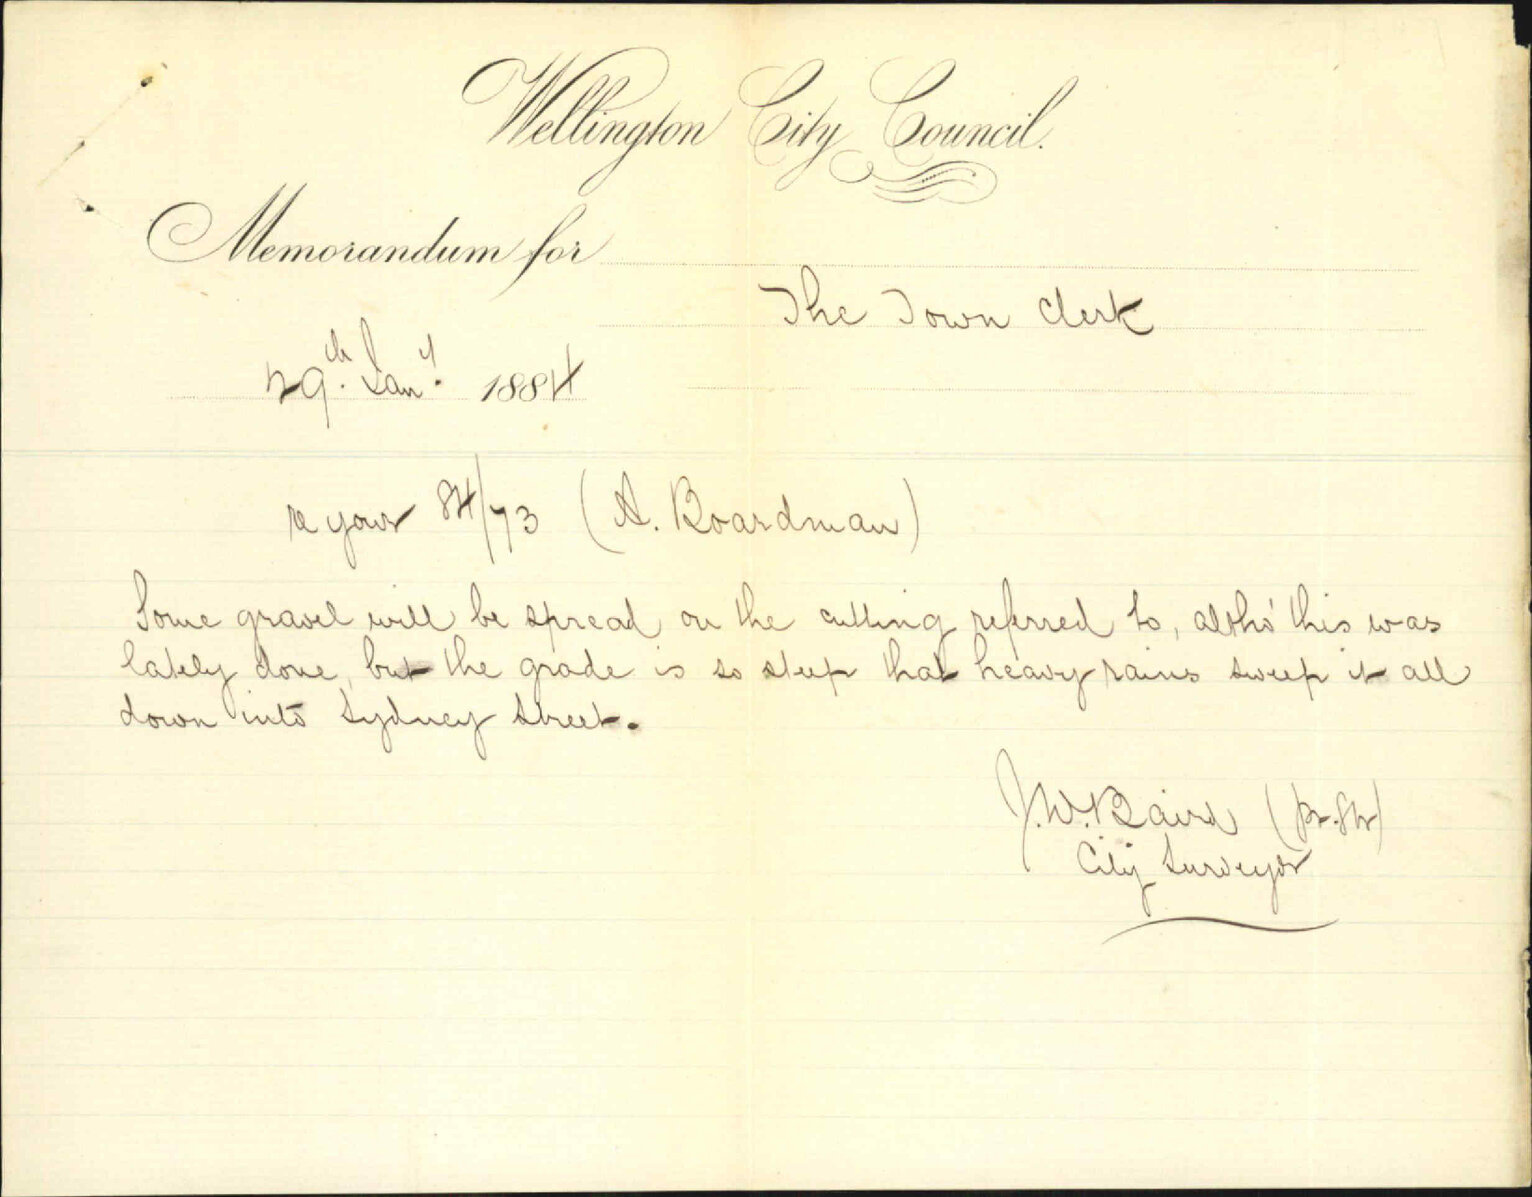 Wellington City Council.
Memorandum for
The Town Clerk
29th. Jany. 1884
re your 84/73 (A. Boardman)
Some gravel will be spread on the cutting referred to, altho' this was
lately done, but the grade is so steep that heavy rains sweep it all
down into Sydney Street.
J.W. Baird
City Surveyor